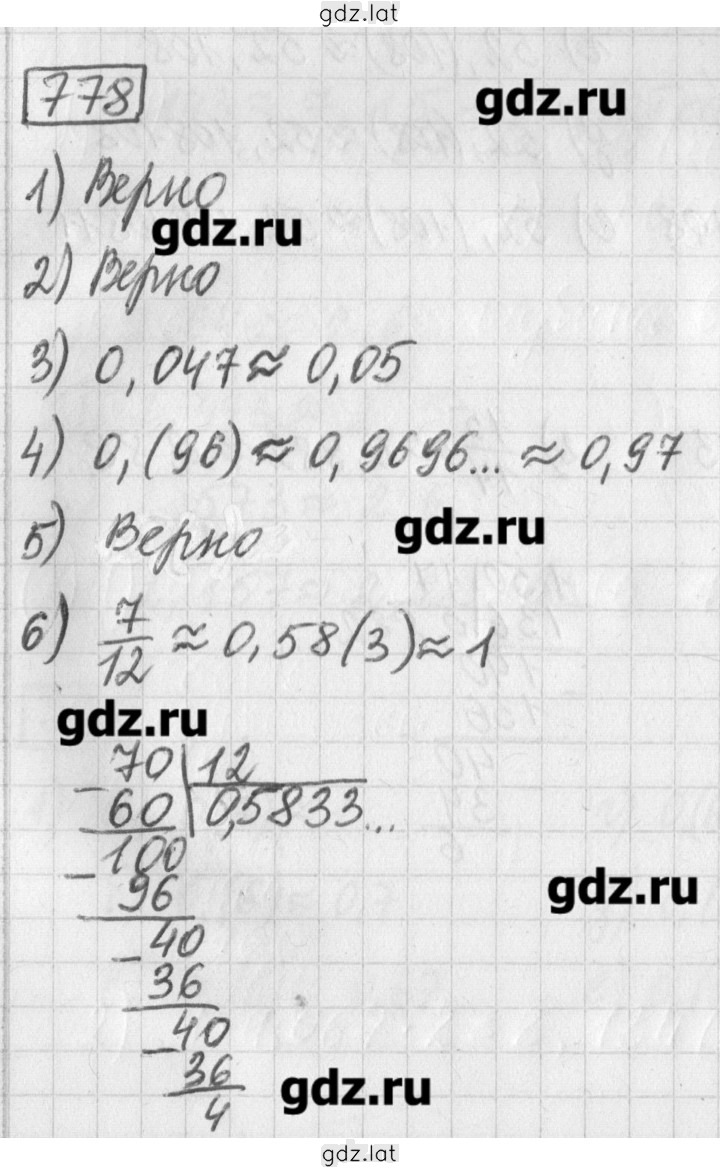 gdz.lat
778
gdz.ru
1) Верно
gdz.ru
2) Верно
3) 0,047 ≈ 0,05
4) 0,(96) ≈ 0,9696... ≈ 0,97
gdz.ru
5) Верно
6) 7/12 ≈ 0,58(3) ≈ 1
gdz.ru
70 | 12
- 60 | 0,5833...
100
- 96
gdz.ru
40
- 36
40
- 36
gdz.ru
4
gdz.lat